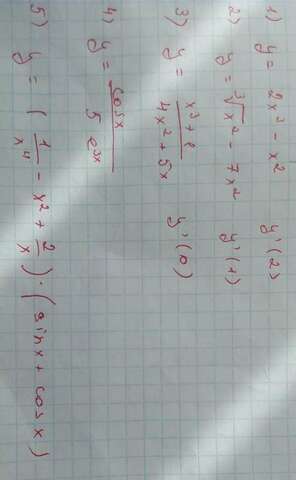 1) y = 2x³ - x² y'(2)
2) y = ³√x² - 7x² y'(1)
3) y = (x³ + ℓ)/(4x² + 5x) y'(0)
4) y = cos x/(5 e³ˣ)
5) y = (1/x⁴ - x² + 2/x) · (sin x + cos x)